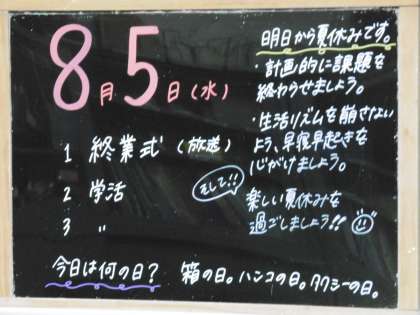 8月5日(水)
1 終業式(放送)
2 学活
3 〃
明日から夏休みです。
・計画的に課題を
終わらせましょう。
・生活リズムを崩さない
よう、早寝早起きを
心がけましょう。
そして!!
楽しい夏休みを
過ごしましょう!!
今日は何の日? 箱の日。ハンコの日。タクシーの日。